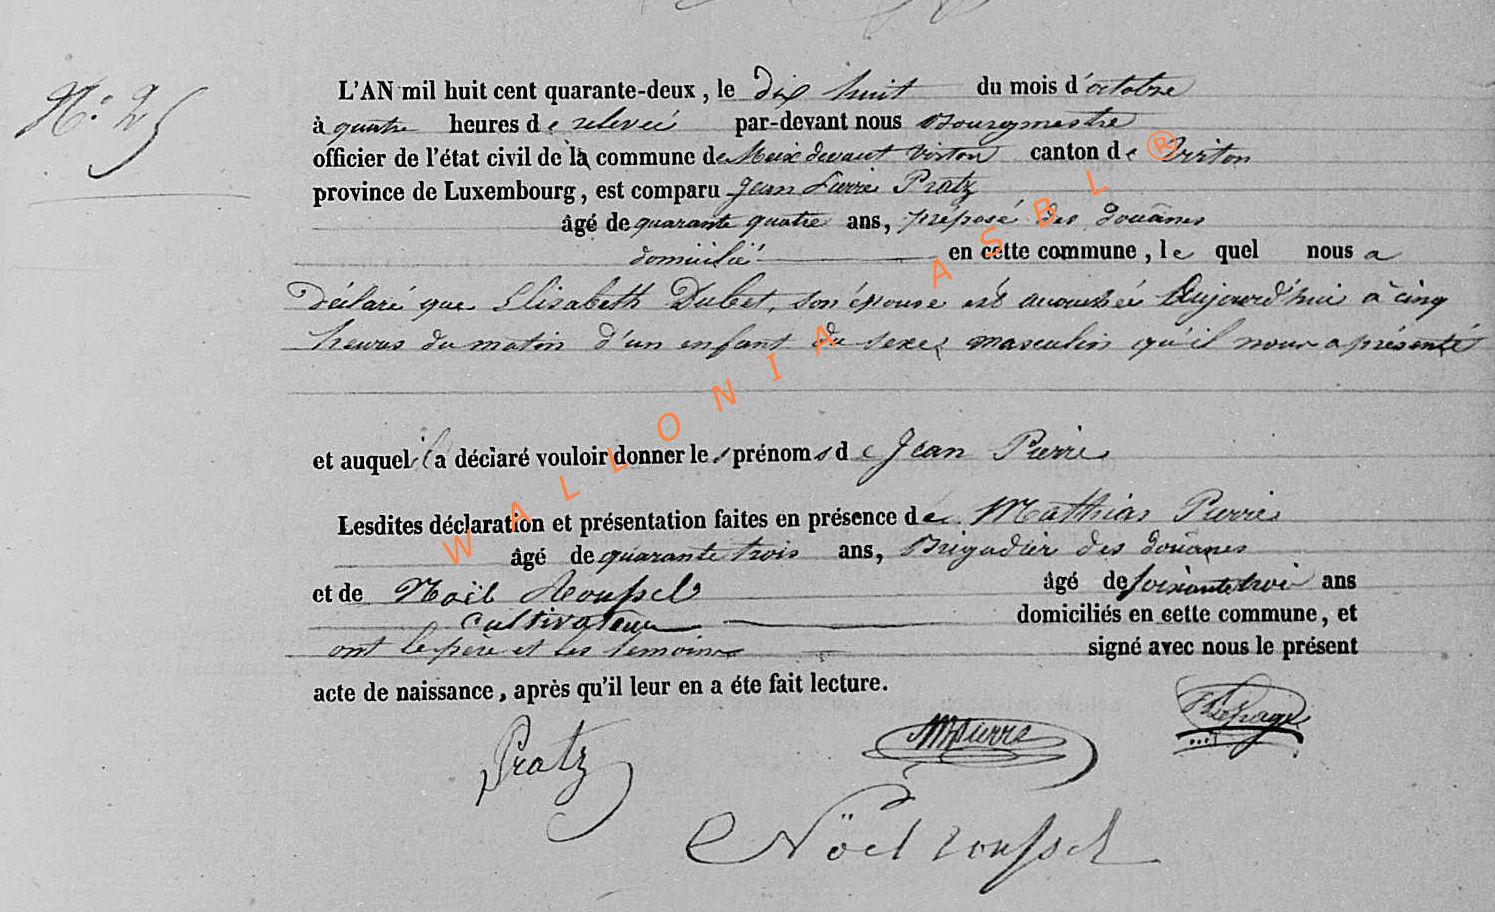 N.° 25
L'AN mil huit cent quarante-deux, le dix huit du mois d'octobre
à quatre heures de relevée par-devant nous Bourgmestre
officier de l'état civil de la commune de Meix devant Virton canton de Virton
province de Luxembourg, est comparu Jean Pierre Pratz
âgé de quarante quatre ans, préposé des douanes
domicilié en cette commune, le quel nous a
déclaré que Elisabeth Dubet, son épouse est accouchée Aujourd'hui à cinq
heures du matin d'un enfant du sexe, masculin qu'il nous a présenté
et auquel il a déclaré vouloir donner les prénoms de Jean Pierre
Lesdites déclaration et présentation faites en présence de Mathias Pierre
âgé de quarante trois ans, Brigadier des douanes
et de Noël Roussel âgé de soixante trois ans
cultivateur domiciliés en cette commune, et
ont le père et les témoins signé avec nous le présent
acte de naissance, après qu'il leur en a éte fait lecture.
Pratz MPierre Lepage
Noël roussel
WALLONIA ASBL ®